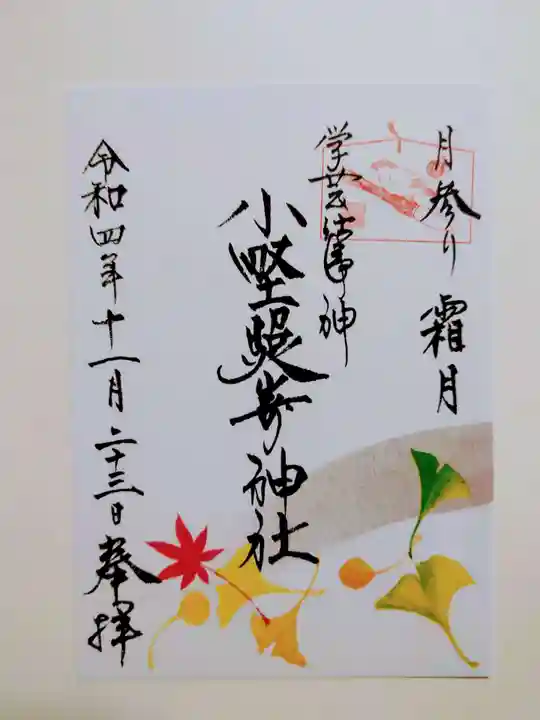 月参り 霜月
学芸の神
小野照崎神社
令和四年十一月二十三日 奉拝